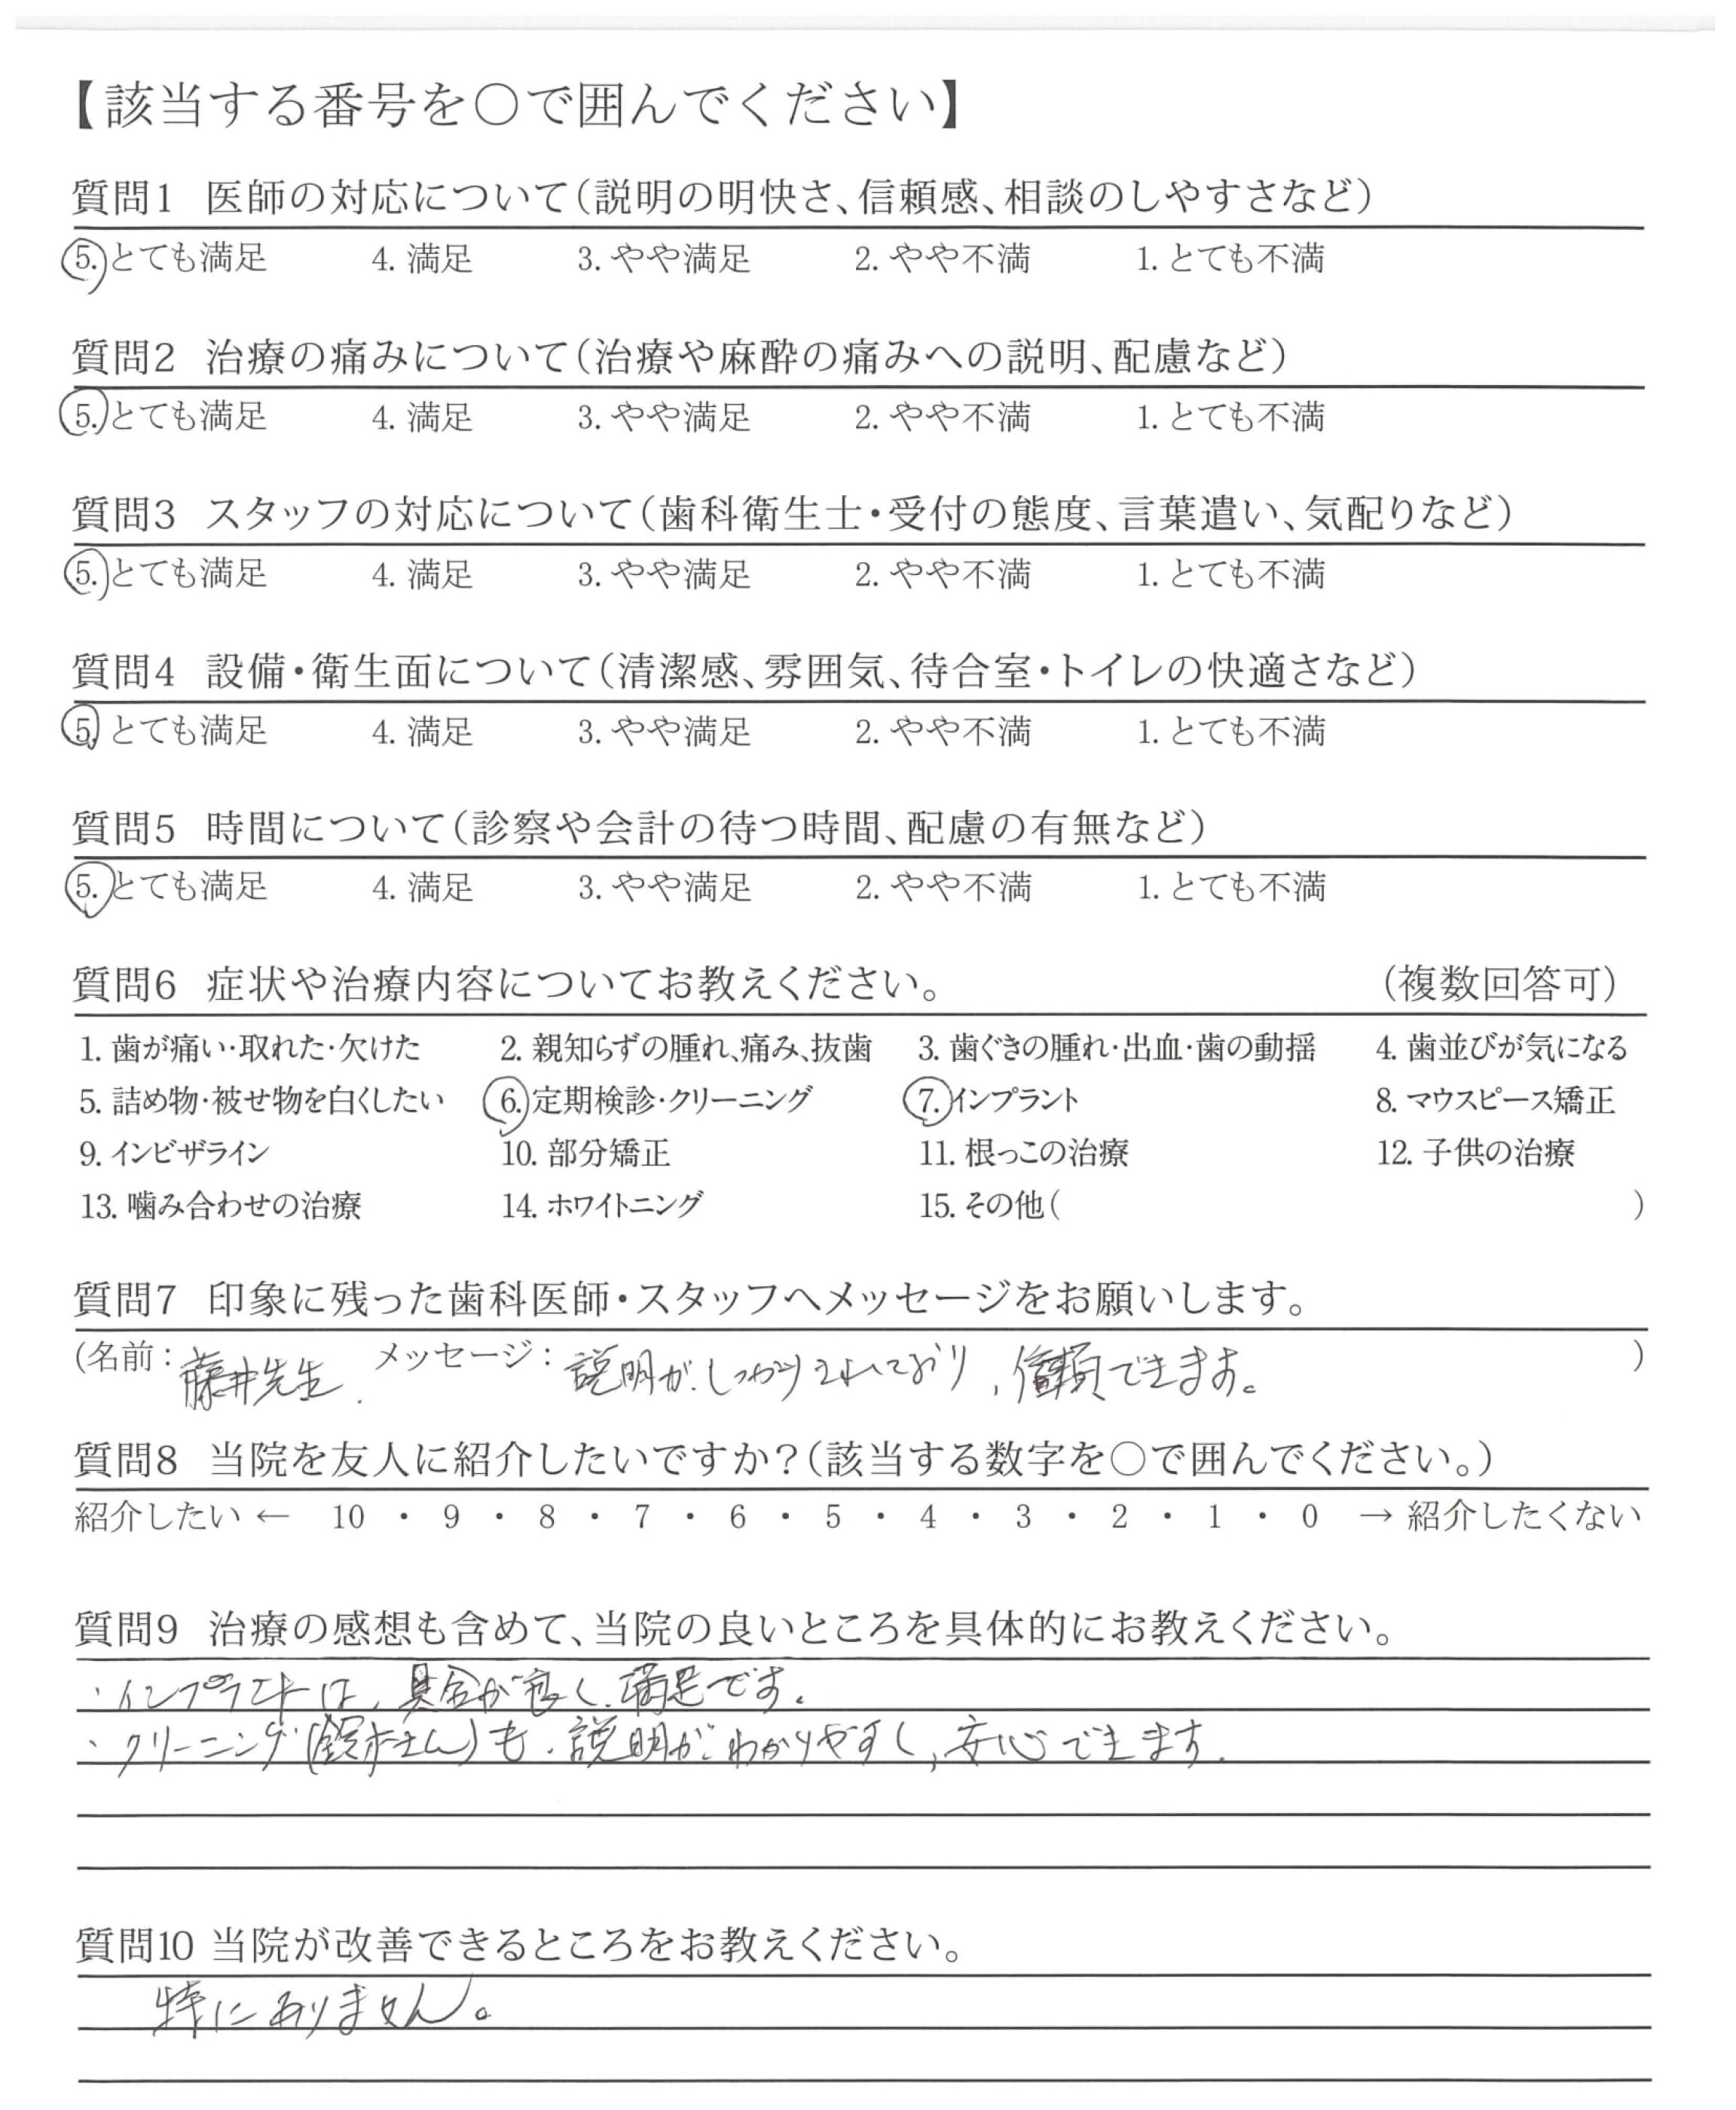 【該当する番号を○で囲んでください】
質問1 医師の対応について（説明の明快さ、信頼感、相談のしやすさなど）
5. とても満足 4. 満足 3. やや満足 2. やや不満 1. とても不満
質問2 治療の痛みについて（治療や麻酔の痛みへの説明、配慮など）
5. とても満足 4. 満足 3. やや満足 2. やや不満 1. とても不満
質問3 スタッフの対応について（歯科衛生士・受付の態度、言葉遣い、気配りなど）
5. とても満足 4. 満足 3. やや満足 2. やや不満 1. とても不満
質問4 設備・衛生面について（清潔感、雰囲気、待合室・トイレの快適さなど）
5. とても満足 4. 満足 3. やや満足 2. やや不満 1. とても不満
質問5 時間について（診察や会計の待つ時間、配慮の有無など）
5. とても満足 4. 満足 3. やや満足 2. やや不満 1. とても不満
質問6 症状や治療内容についてお教えください。 （複数回答可）
1. 歯が痛い・取れた・欠けた 2. 親知らずの腫れ、痛み、抜歯 3. 歯ぐきの腫れ・出血・歯の動揺 4. 歯並びが気になる
5. 詰め物・被せ物を白くしたい 6. 定期検診・クリーニング 7. インプラント 8. マウスピース矯正
9. インビザライン 10. 部分矯正 11. 根っこの治療 12. 子供の治療
13. 噛み合わせの治療 14. ホワイトニング 15. その他（ ）
質問7 印象に残った歯科医師・スタッフへメッセージをお願いします。
（名前：藤井先生. メッセージ：説明が、しっかりされており、信頼できます。 ）
質問8 当院を友人に紹介したいですか？（該当する数字を○で囲んでください。）
紹介したい ← 10 ・ 9 ・ 8 ・ 7 ・ 6 ・ 5 ・ 4 ・ 3 ・ 2 ・ 1 ・ 0 → 紹介したくない
質問9 治療の感想も含めて、当院の良いところを具体的にお教えください。
・インプラントは、具合が良く、満足です。
・クリーニング(鈴木さん)も、説明がわかりやすく、安心できます.
質問10 当院が改善できるところをお教えください。
特にありません。